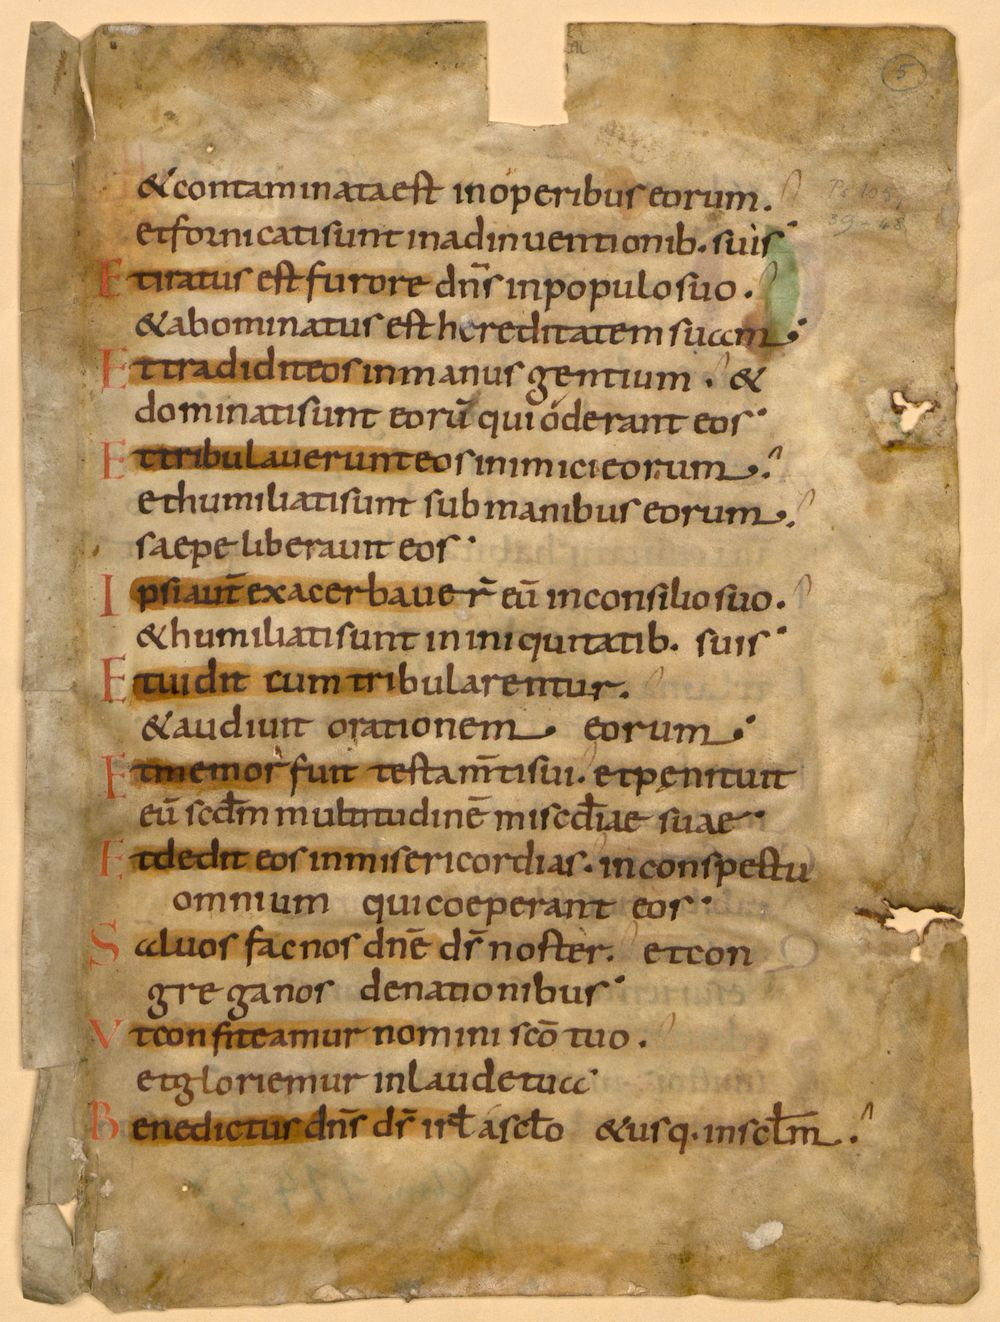 5
Ps 105,
39-48
& contaminata est in operibus eorum.
et fornicati sunt in adinventionib. suis
Et iratus est furore dn̄s in populo suo.
& abominatus est hereditatem suam
Et tradidit eos in manus gentium. &
dominati sunt eorū qui oderant eos
Et tribulauerunt eos inimici eorum.
et humiliati sunt sub manibus eorum.
saepe liberauit eos
Ipsi aut̄ exacerbauer̄ eū in consilio suo.
& humiliati sunt in iniquitatib. suis
Et uidit cum tribularentur.
& audiuit orationem eorum
Et memor fuit testam̄ti sui. et penituit
eū scdm̄ multitudinē miscd̄iae suae
Et dedit eos in misericordias. in conspectu
omnium qui coeperant eos
Saluos fac nos dn̄e ds̄ noster. et con
grega nos de nationibus
Vt confiteamur nomini scō tuo.
et gloriemur in laude tua
Benedictus dn̄s ds̄ isrl̄ a scl̄o & usq. in scl̄m.